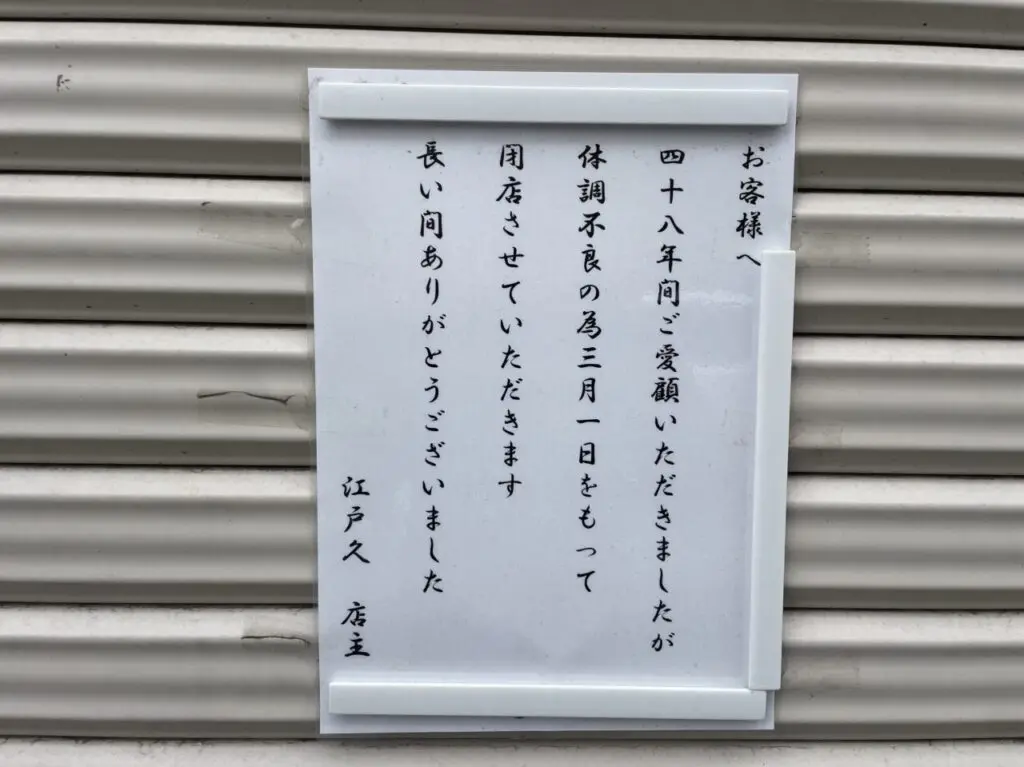 お客様へ
四十八年間ご愛顧いただきましたが
体調不良の為三月一日をもって
閉店させていただきます
長い間ありがとうございました
江戸久 店主